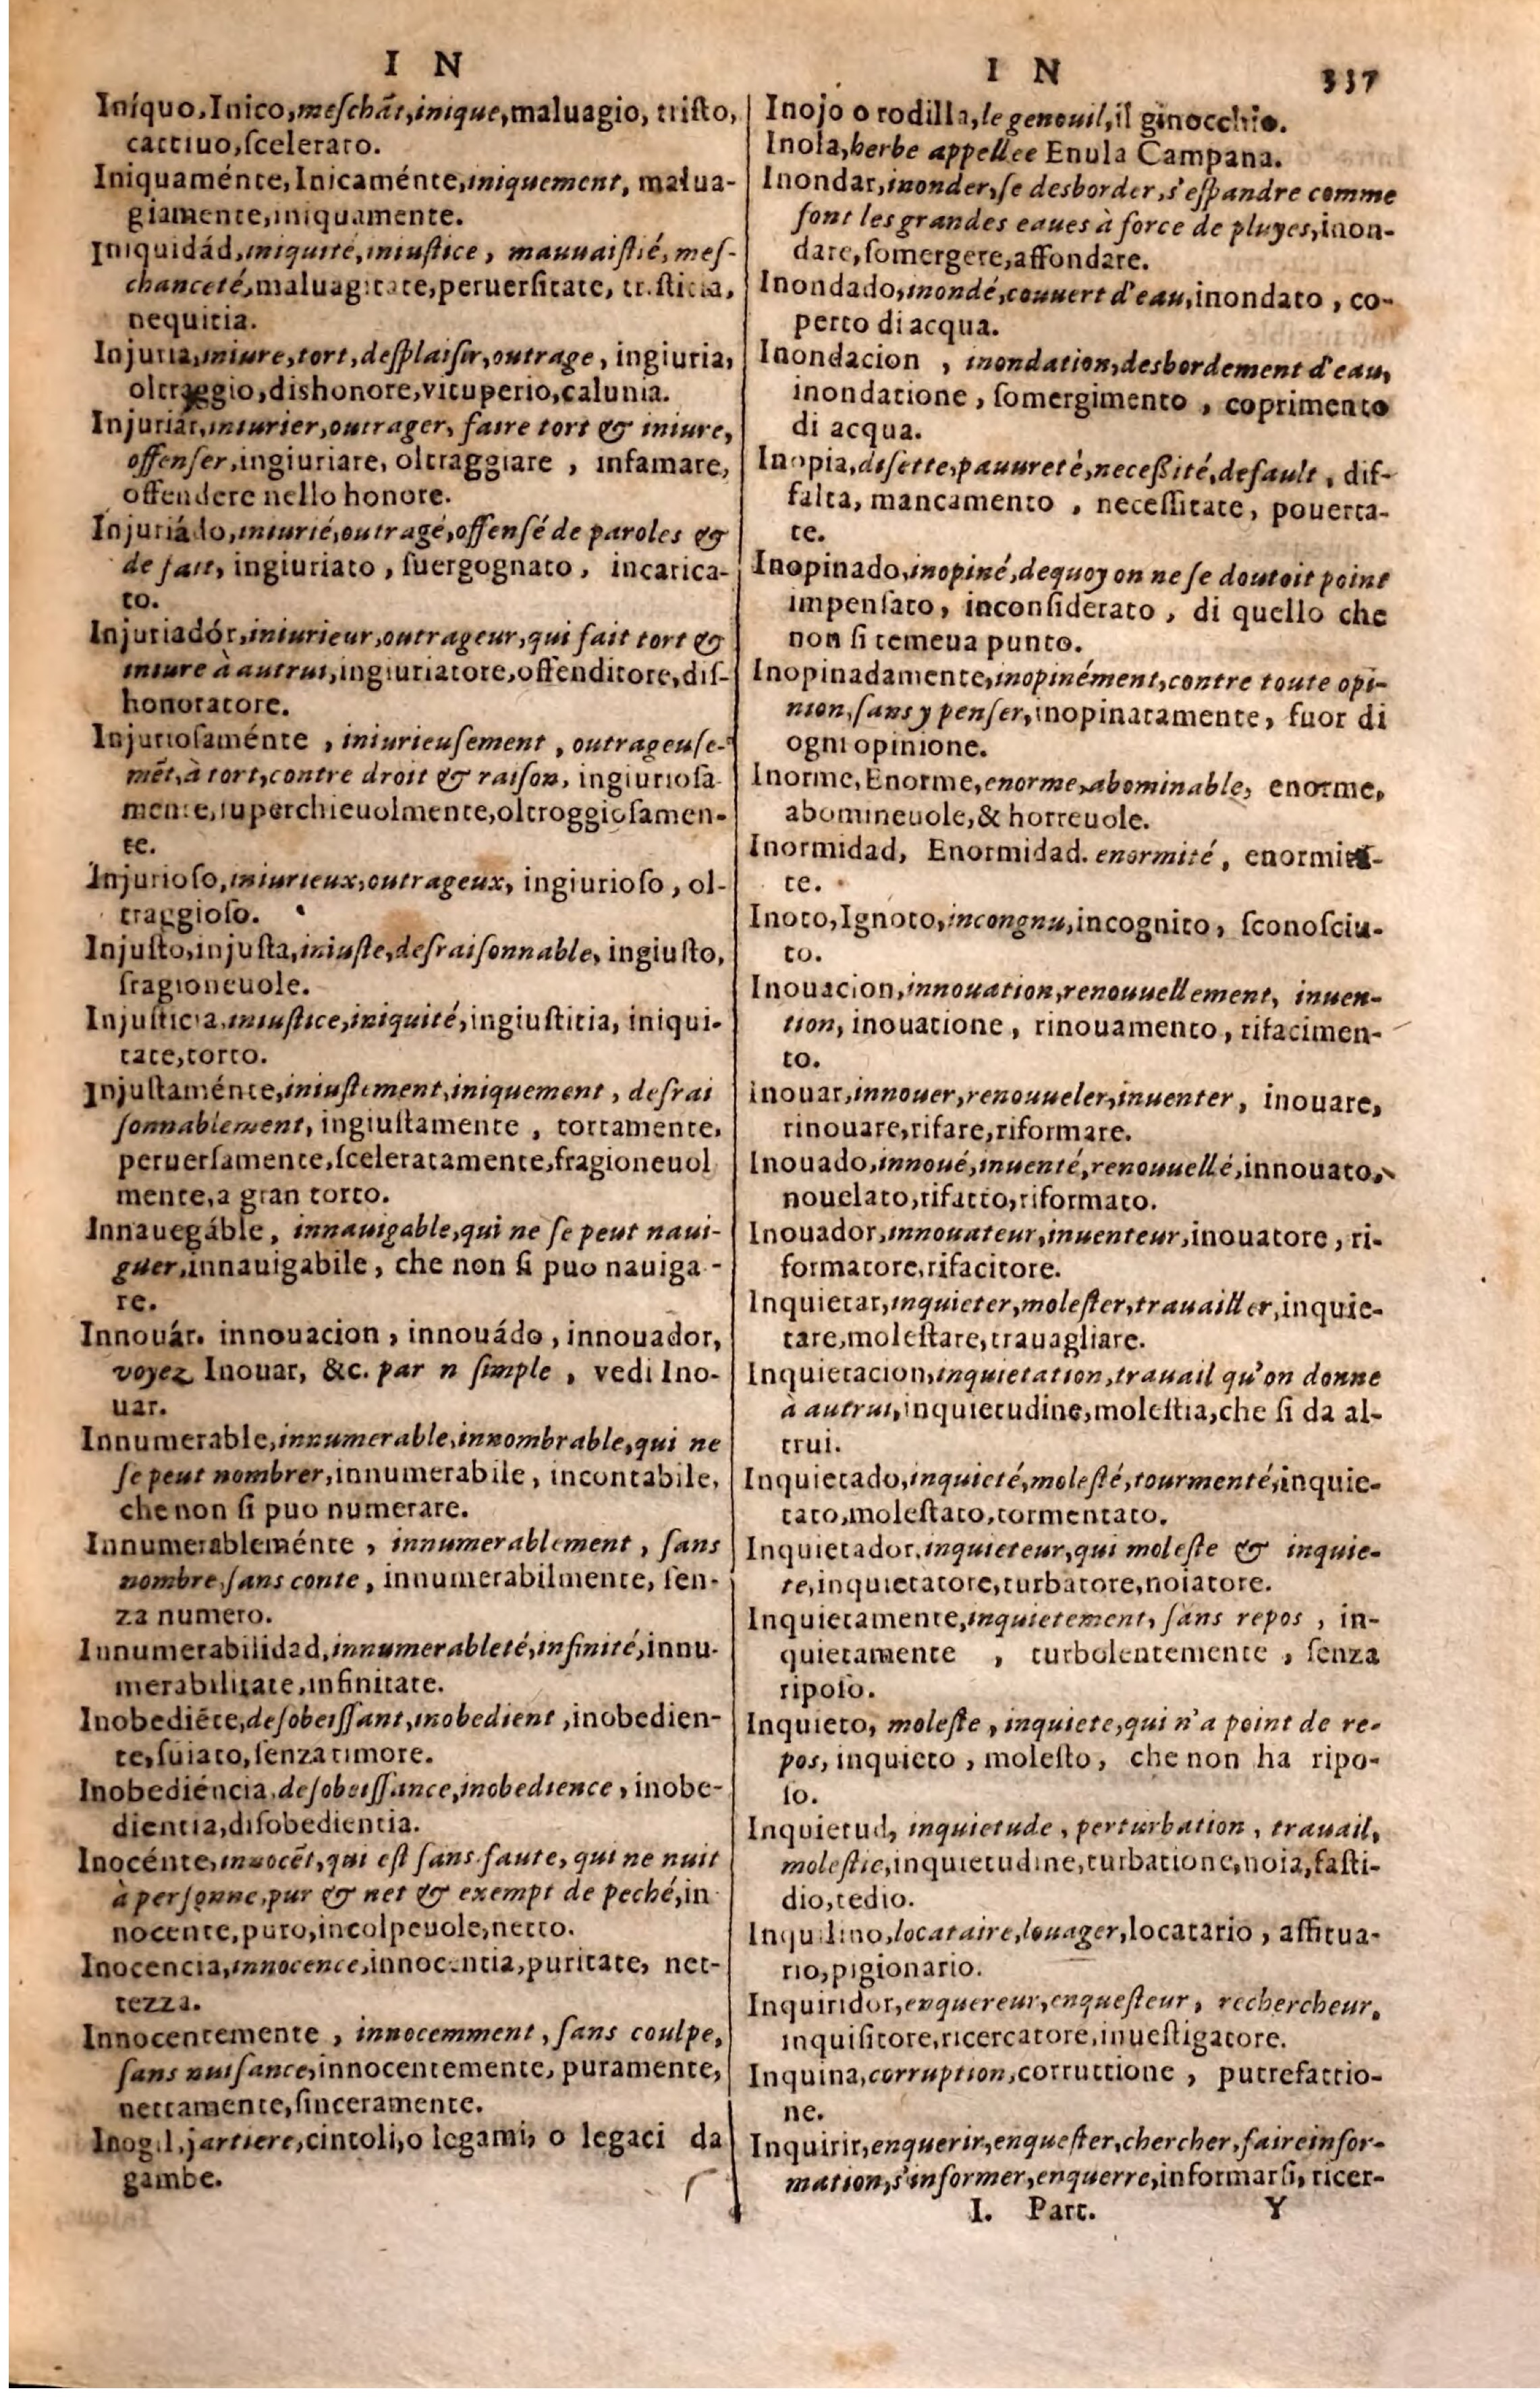 I N
Iníquo, Inico, meschãt, inique, maluagio, tristo,
cattiuo, scelerato.
Iniquaménte, Inicaménte, iniquement, malua-
giamente, iniquamente.
Iniquidád, iniquité, iniustice, mauuaistié, mes-
chanceté, maluagitate, peruersitate, tristicia,
nequitia.
Injuria, iniure, tort, desplaisir, outrage, ingiuria,
oltraggio, dishonore, vituperio, calunia.
Injuriár, iniurier, outrager, faire tort & iniure,
offenser, ingiuriare, oltraggiare, infamare,
offendere nello honore.
Injuriádo, iniurié, outragé, offensé de paroles &
de fait, ingiuriato, suergognato, incarica-
to.
Injuriadór, iniurieur, outrageur, qui fait tort &
iniure à autrui, ingiuriatore, offenditore, dis-
honoratore.
Injuriosaménte, iniurieusement, outrageuse-
mēt, à tort, contre droit & raison, ingiuriosa
mente, superchieuolmente, oltroggiosamen-
te.
Injurioso, iniurieux, outrageux, ingiurioso, ol-
traggioso.
Injusto, injusta, iniuste, desraisonnable, ingiusto,
sragioneuole.
Injusticia, iniustice, iniquité, ingiustitia, iniqui-
tate, torto.
Injustaménte, iniustement, iniquement, desrai
sonnablement, ingiustamente, tortamente,
peruersamente, sceleratamente, fragioneuol
mente, a gran torto.
Innauegáble, innauigable, qui ne se peut naui-
guer, innauigabile, che non si puo nauiga-
re.
Innouár. innouacion, innouádo, innouador,
voyez Inouar, &c. par n simple, vedi Ino-
uar.
Innumerable, innumerable, innombrable, qui ne
se peut nombrer, innumerabile, incontabile,
che non si puo numerare.
Innumerableménte, innumerablement, sans
nombre, sans conte, innumerabilmente, sen-
za numero.
Innumerabilidad, innumerableté, infinité, innu-
merabilitate, infinitate.
Inobediẽte, desobeissant, inobedient, inobedien-
te, suiato, senza timore.
Inobediéncia, desobeissance, inobedience, inobe-
dientia, disobedientia.
Inocénte, innocēt, qui est sans faute, qui ne nuit
à personne, pur & net & exempt de peché, in
nocente, puro, incolpeuole, netto.
Inocencia, innocence, innocentia, puritate, net-
tezza.
Innocentemente, innocemment, sans coulpe,
sans nuisance, innocentemente, puramente,
nettamente, sinceramente.
Inogil, jartiere, cintoli, o legami, o legaci da
gambe.
I N 337
Inojo o rodilla, le genouil, il ginocchio.
Inola, herbe appellee Enula Campana.
Inondar, inonder, se desborder, s'espandre comme
font les grandes eaues à force de pluyes, inon-
dare, somergere, affondare.
Inondado, inondé, couuert d'eau, inondato, co-
perto di acqua.
Inondacion, inondation, desbordement d'eau,
inondatione, somergimento, coprimento
di acqua.
Inopia, disette, pauureté, necessité, default, dif-
falta, mancamento, necessitate, pouerta-
te.
Inopinado, inopiné, dequoy on ne se doutoit point
impensato, inconsiderato, di quello che
non si temeua punto.
Inopinadamente, inopinément, contre toute opi-
nion, sans y penser, inopinatamente, fuor di
ogni opinione.
Inorme, Enorme, enorme, abominable, enorme,
abomineuole, & horreuole.
Inormidad, Enormidad. enormité, enormita-
te.
Inoto, Ignoto, incongnu, incognito, sconosciu-
to.
Inouacion, innouation, renouuellement, inuen-
tion, inouatione, rinouamento, rifacimen-
to.
Inouar, innouer, renouueler, inuenter, inouare,
rinouare, rifare, riformare.
Inouado, innoué, inuenté, renouuellé, innouato,
nouelato, rifatto, riformato.
Inouador, innouateur, inuenteur, inouatore, ri-
formatore, rifacitore.
Inquietar, inquieter, molester, trauailler, inquie-
tare, molestare, trauagliare.
Inquietacion, inquietation, trauail qu'on donne
à autrui, inquietudine, molestia, che si da al-
trui.
Inquietado, inquieté, molesté, tourmenté, inquie-
tato, molestato, tormentato.
Inquietador, inquieteur, qui moleste & inquie-
te, inquietatore, turbatore, noiatore.
Inquietamente, inquietement, sans repos, in-
quietamente, turbolentemente, senza
riposo.
Inquieto, moleste, inquiete, qui n'a point de re-
pos, inquieto, molesto, che non ha ripo-
so.
Inquietud, inquietude, perturbation, trauail,
molestie, inquietudine, turbatione, noia, fasti-
dio, tedio.
Inquilino, locataire, louager, locatario, affitua-
rio, pigionario.
Inquiridor, enquereur, enquesteur, rechercheur,
inquisitore, ricercatore, inuestigatore.
Inquina, corruption, corruttione, putrefattio-
ne.
Inquirir, enquerir, enquester, chercher, faire infor-
mation, s'informer, enquerre, informarsi, ricer-
I. Part. Y